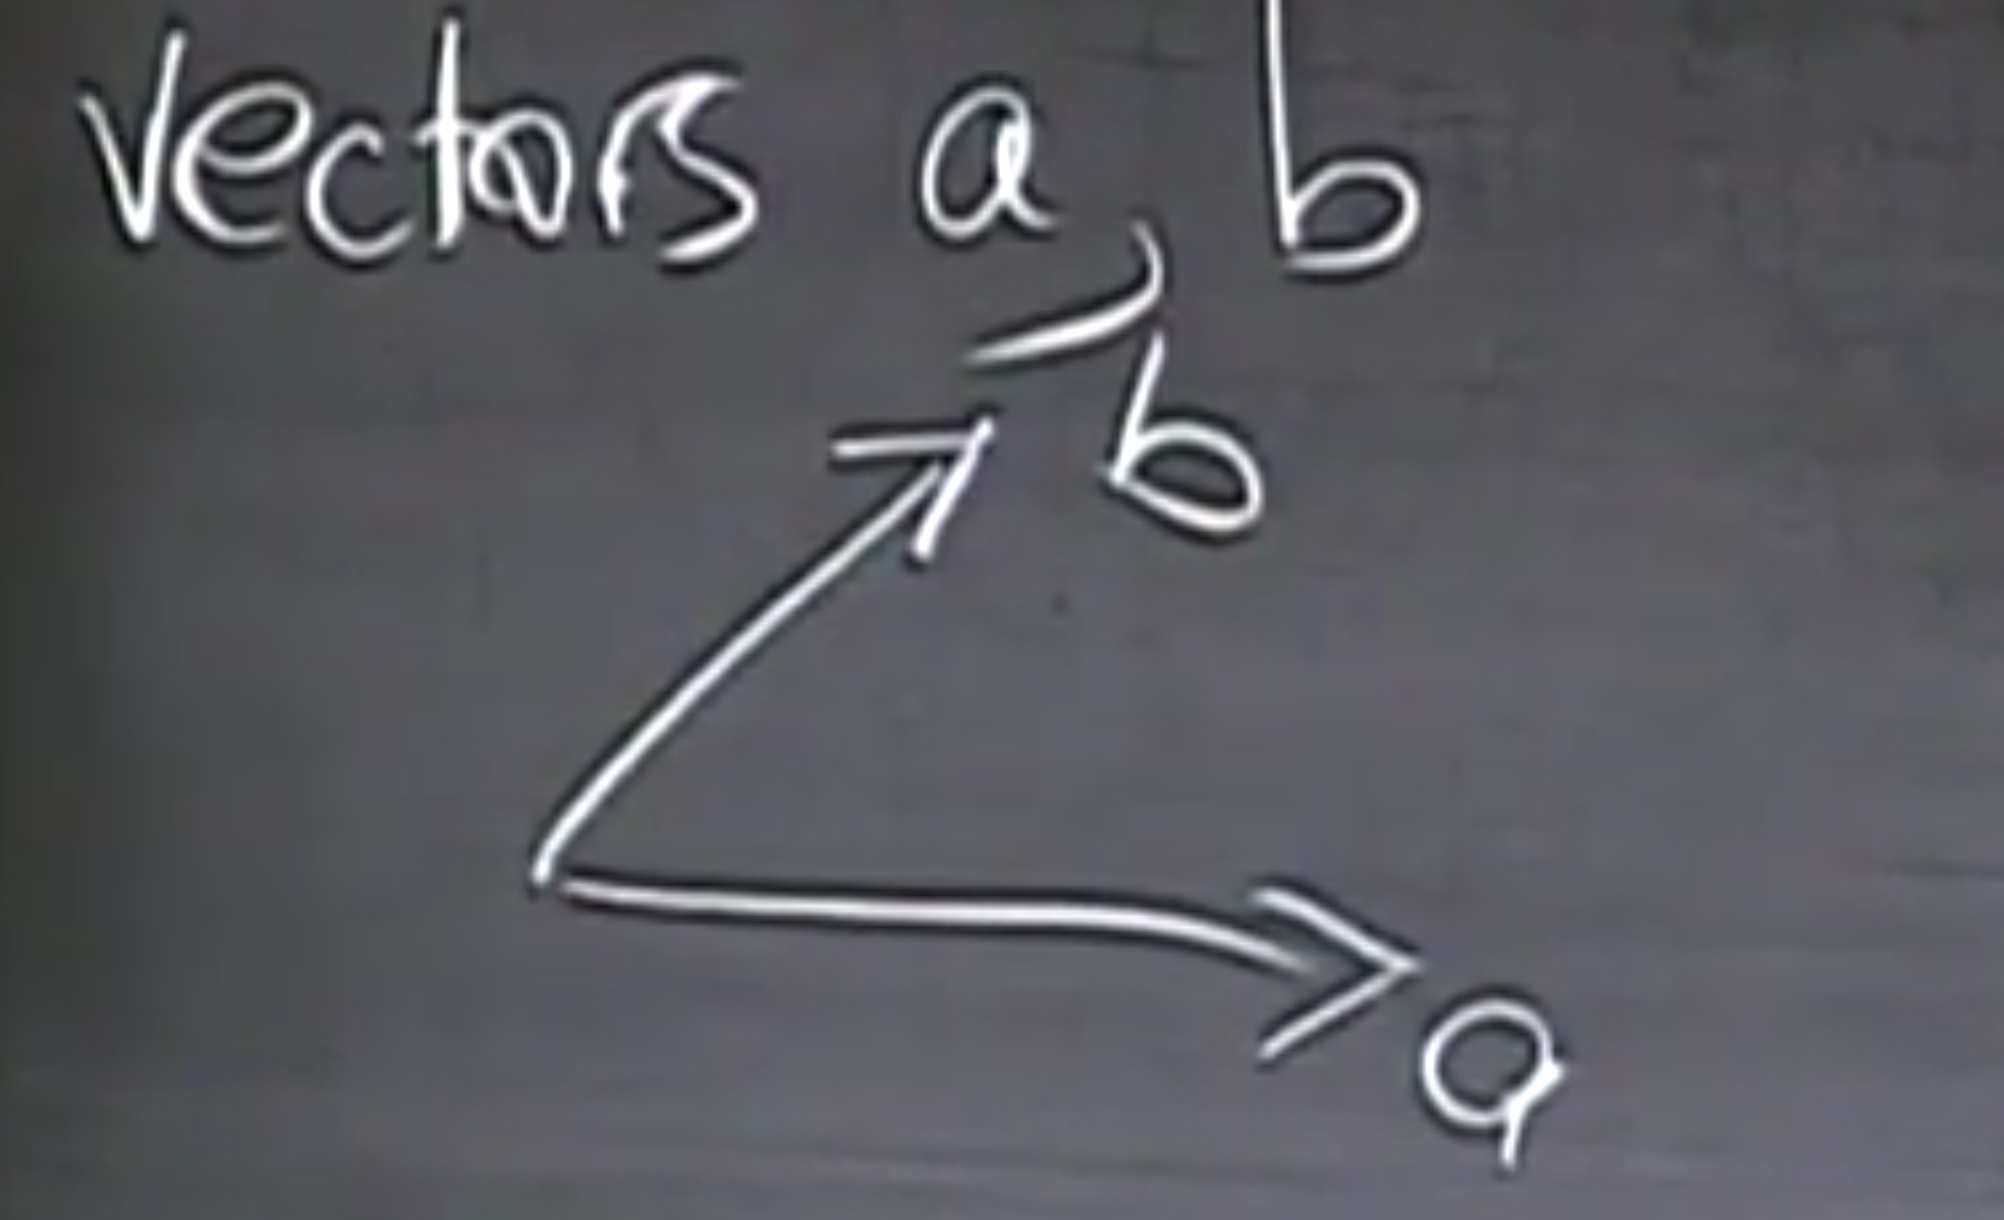 vectors a, b
b
a